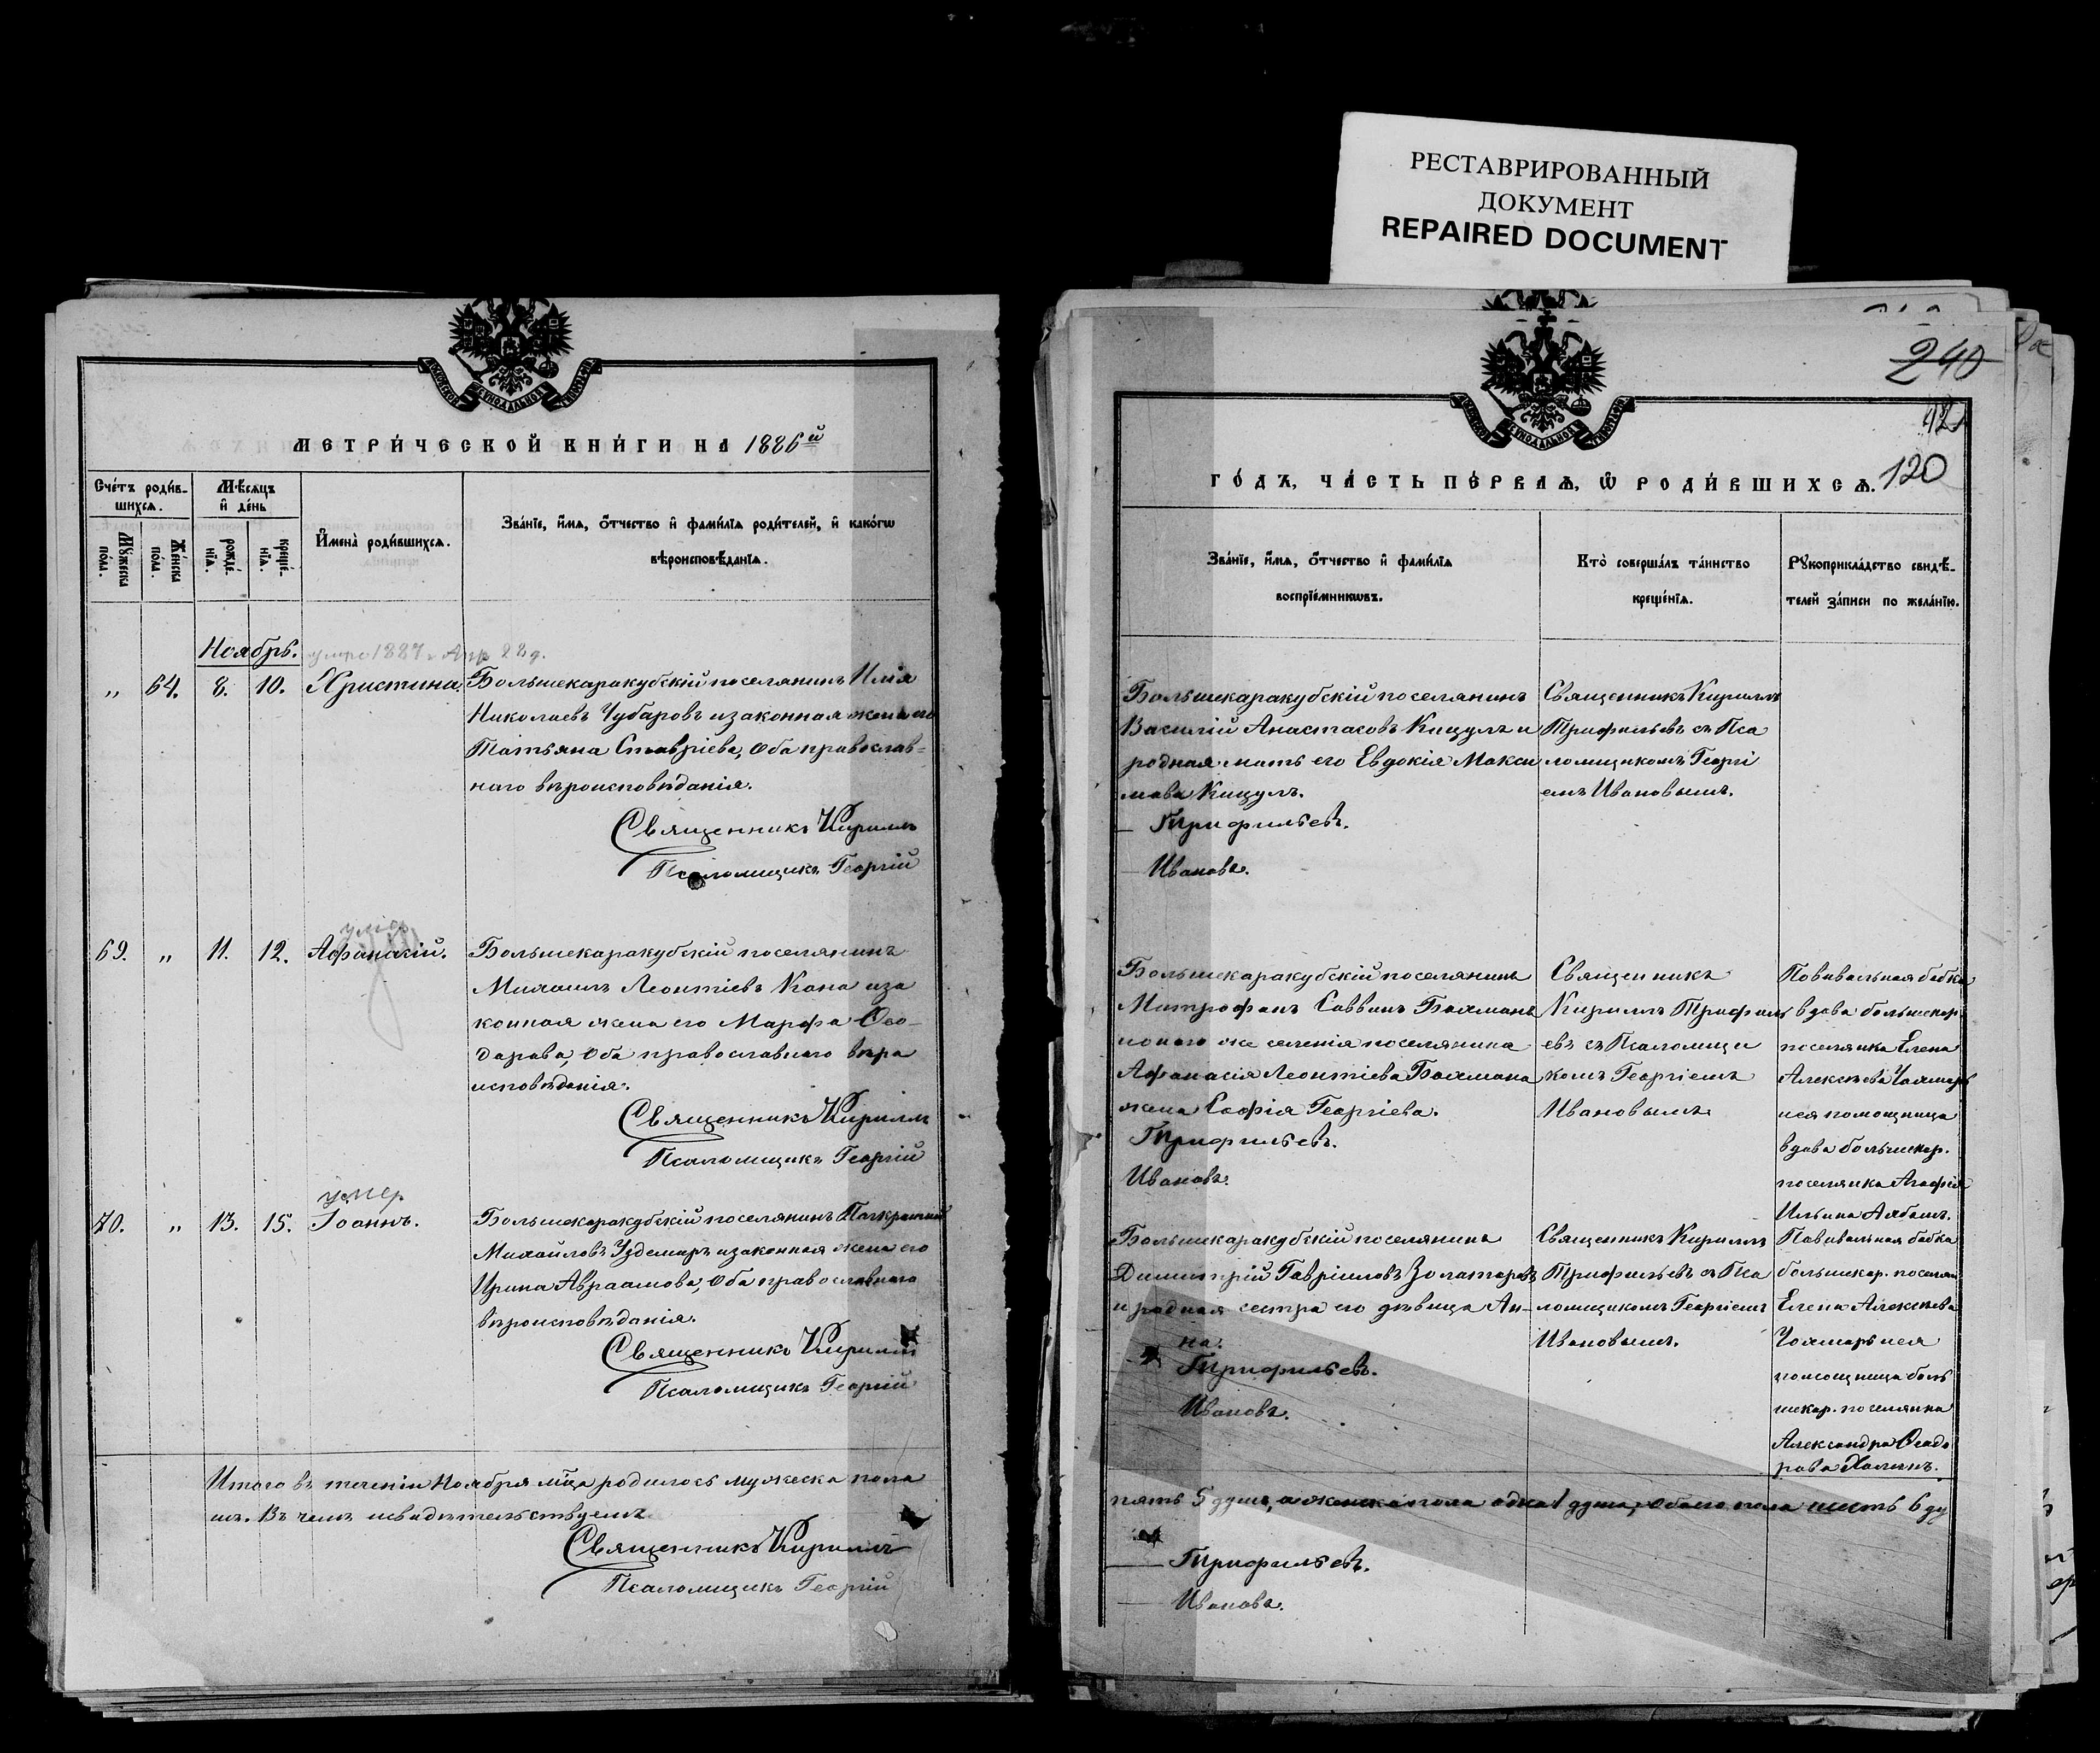 РЕСТАВРИРОВАННЫЙ
ДОКУМЕНТ
REPAIRED DOCUMENT
МЕТРИ́ЧЕСКОЙ КНИ́ГИ НА 1886й
Сче́тъ роди́в-
шихсѧ.
Мѣ́сѧцъ
и҆ де́нь
Мꙋ́жеска
по́ла.
Же́нска
по́ла.
рожде́-
нїѧ.
креще́-
нїѧ.
И҆мена̀ роди́вшихсѧ.
Зва́нїе, и҆́мѧ, ѻ҆́тчество и҆ фами́лїѧ роди́телей, и҆ како́гѡ
вѣроисповѣ́данїѧ.
Ноябрь.
умре 1887 г Апр 28 д.
„ 64. 8. 10. Христина.
Большекаракубскій поселянинъ Илія
Николаевъ Чубаровъ и законная жена его
Татьяна Ставріева, оба православ=
наго вѣроисповѣданія.
Священникъ Кириллъ
Псаломщикъ Георгій
умер
69. „ 11. 12. Афанасій.
Большекаракубскій поселянинъ
Михаилъ Леонтіевъ Кона и за
конная жена его Марфа Ѳео-
дорова, оба православнаго вѣро
исповѣданія.
Священникъ Кириллъ
Псаломщикъ Георгій
умер
70. „ 13. 15. Іоаннъ.
Большекаракубскій поселянинъ Панкратій
Михайловъ Уздемиръ и законная жена его
Ирина Авраамова, оба православнаго
вѣроисповѣданія.
Священникъ Кириллъ
Псаломщикъ Георгій
Итого въ теченіи Ноября мца родилось мужеска пола
шъ. Въ чемъ и свидѣтельствуемъ
Священникъ Кириллъ
Псаломщикъ Георгій
240
120
ГО́ДЪ, ЧА́СТЬ ПЕ́РВАѦ, Ѡ҆ РОДИ́ВШИХСѦ.
Зва́нїе, и҆́мѧ, ѻ҆́тчество и҆ фами́лїѧ
воспрїе́мникѡвъ.
Кто̀ соверша́лъ та́инство
креще́нїѧ.
Рꙋкоприкла́дство свидѣ́-
телей за́писи по жела́нїю.
Большекаракубскій поселянинъ
Василій Анастасовъ Кицулъ и
родная мать его Евдокія Макси
мова Кицулъ.
Трифильевъ.
Ивановъ.
Священникъ Кириллъ
Трифильевъ съ Пса
ломщикомъ Георгі
емъ Ивановымъ.
Большекаракубскій поселянинъ
Митрофанъ Саввинъ Бахманъ
и онаго же селенія поселянина
Афанасія Леонтіева Бахмана
жена Софія Георгіева.
Трифильевъ.
Ивановъ.
Священникъ
Кириллъ Трифиль
евъ съ Псаломщи
комъ Георгіемъ
Ивановымъ
Повивальная бабка
вдова большекар.
поселянка Елена
Алексѣева Чахмарь
и ея помощница
вдова большекар.
поселянка Агафія
Ильина Албашъ.
Большекаракубскій поселянинъ
Димитрій Гавріиловъ Золотаревъ
и родная сестра его дѣвица Ан-
на.
Трифильевъ.
Ивановъ.
Священникъ Кириллъ
Трифильевъ съ Пса
ломщикомъ Георгіемъ
Ивановымъ.
Повивальная бабка
большекар. поселян
Елена Алексѣева
Чахмарь и ея
помощница боль
шекар. поселянка
Александра Ѳеодо
рова Халанъ.
пять 5 душъ, а женска пола одна 1 душа, обоего пола шесть 6 ду
Трифильевъ.
Ивановъ.